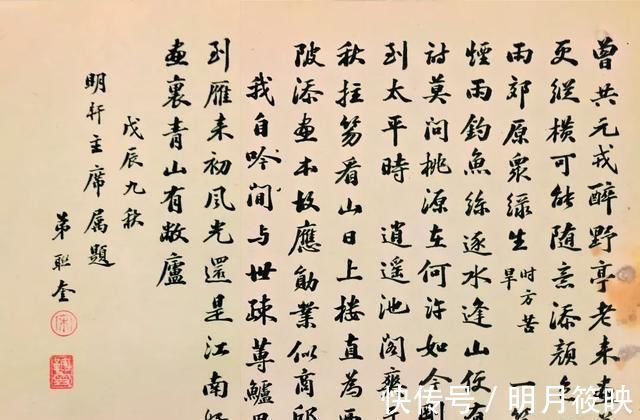 曾共元戎醉野亭老来
更纵横可能随意添颜色
雨郊原众绿生 时方苦旱 一
烟雨钓鱼丝逐水逢山便
诗莫问桃源在何许如今
到太平时 逍遥池阁
秋拄笏看山日上楼直为西
陂添画本故应勋业似商
我自吟间与世疏莼鲈
到雁来初风光还是江南
画里青山有敝庐
戊辰九秋
明轩主席属题
弟联奎
快传号 / 明月筱映